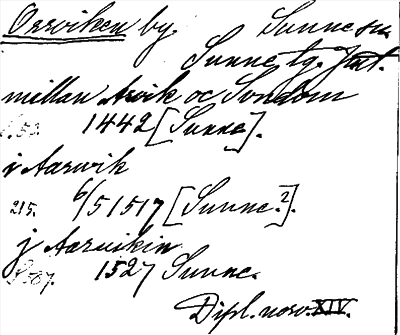 Orrviken by Sunne sn
Sunne tg. Jmt.
millan Arvik oc Sundom
1442 [Sunne].
j Aarwik
215. 6/5 1517 [Sunne.?].
j Aarwikin
P. 567. 1527 Sunne.
Dipl. norv. XIV.